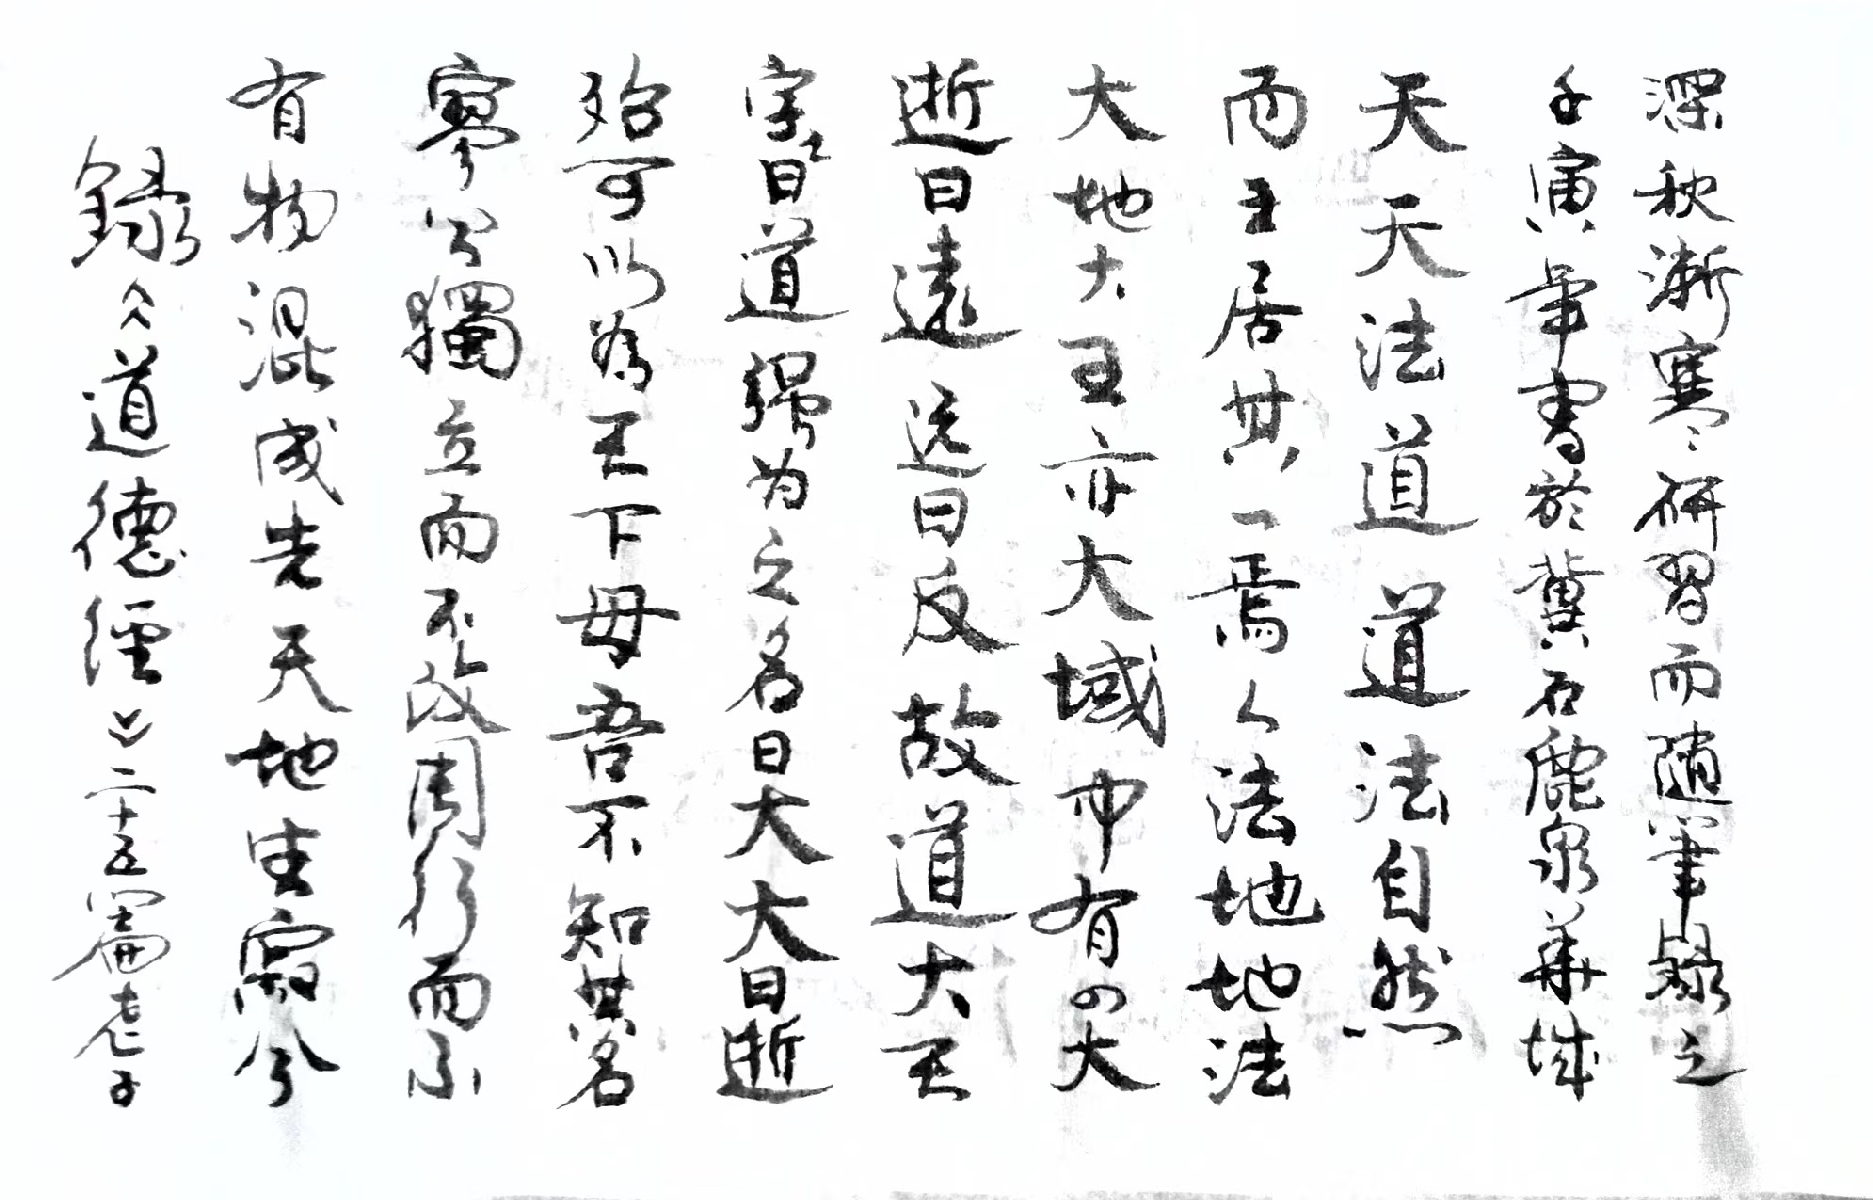 録《道德經》二十五篇老子
有物混成先天地生寂兮
寥兮獨立而不改周行而不
殆可以為天下母吾不知其名
字之曰道强为之名曰大大曰逝
逝曰遠远曰反故道大天
大地大王亦大域中有四大
而王居其一焉人法地地法
天天法道道法自然
壬寅年書於冀石鹿泉華城
深秋漸寒研習而隨筆録之